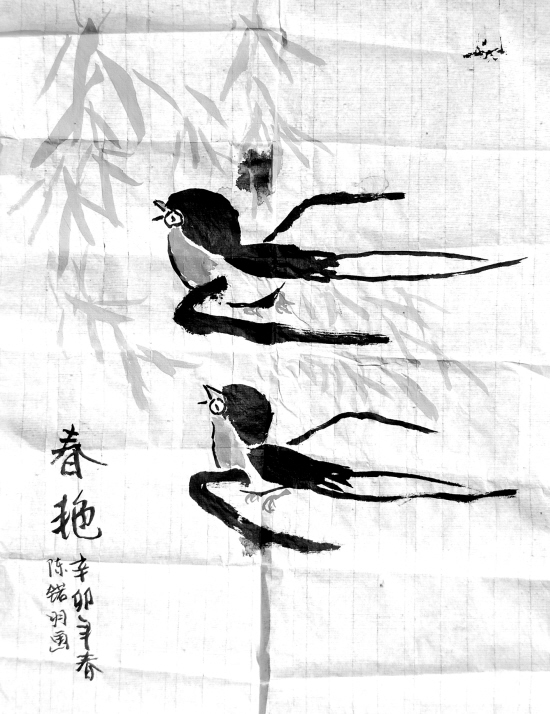 春艳
辛卯年春
陈锘羽画